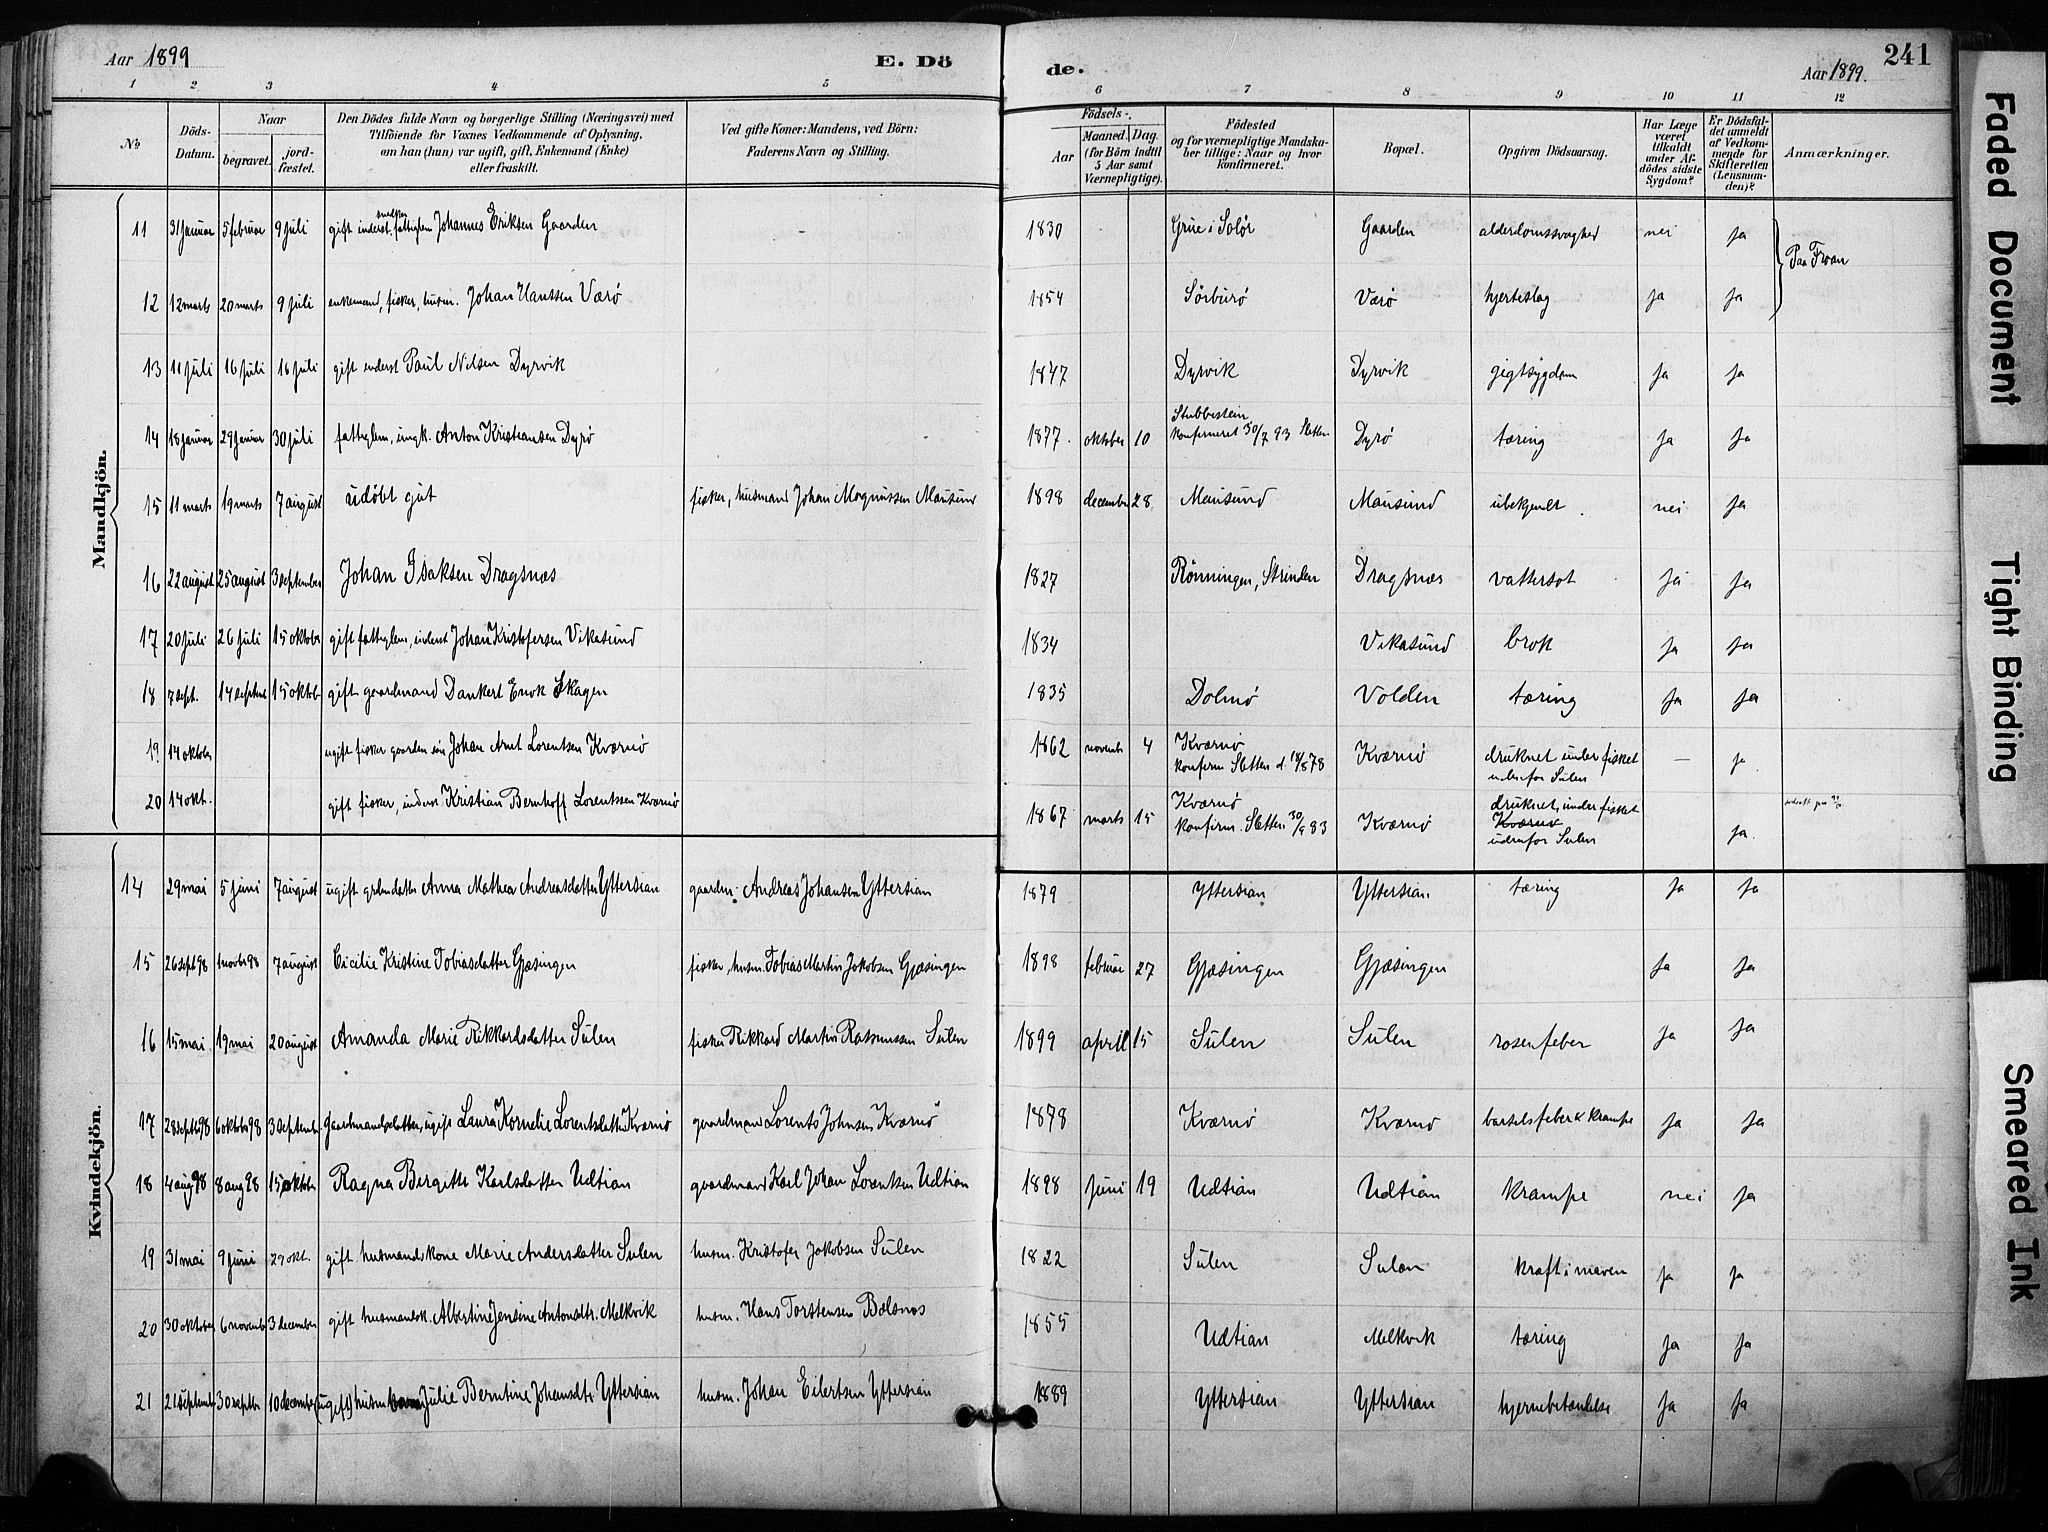 Aar 1899
E. Dö
de.
Aar 1899.
241
1 2 3 4 5 6 7 8 9 10 11 12
No
Döds-Datum.
Naar
begravet.
jord-fæstet.
Den Dödes fulde Navn og borgerlige Stilling (Næringsvei) med
Tilföiende for Voxnes Vedkommende af Oplysning,
om han (hun) var ugift, gift, Enkemand (Enke)
eller fraskilt.
Ved gifte Koner: Mandens, ved Börn:
Faderens Navn og Stilling.
Födsels-
Aar
Maaned. Dag.
(for Börn indtil
5 Aar samt
Værnepligtige).
Födested
og for værnepligtige Mandska-
ber tillige: Naar og hvor
konfirmeret.
Bopæl.
Opgiven Dödsaarsag.
Har Læge
været
tilkaldt
under Af-
dödes sidste
Sygdom?
Er Dödsfal-
det anmeldt
af Vedkom-
mende for
Skifteretten
(Lensman-
den)?
Anmærkninger.
Mandkjön.
11 31 januar 5 februar 9 juli gift inderst, fattiglem Johannes Eriksen Gaarden 1830 Grue i Solør Gaarden alderdomssvaghed nei ja
Paa Froan
12 12 marts 20 marts 9 juli enkemand, fisker, husm. Johan Hanssen Værø 1854 Sørburø Værø hjerteslag ja ja
13 11 juli 16 juli 16 juli gift inderst Paul Nilsen Dyrvik 1847 Dyrvik Dyrvik gigtsygdom ja ja
14 18 januar 29 januar 30 juli fattiglem, ungk. Anton Kristiansen Dyrø 1877. oktober 10 Stubbestein
konfirmeret 30/7 93 Sletten Dyrø tæring ja ja
15 11 marts 19 marts 7 august udøbt gut fisker, husmand Johan Magnussen Mausund 1898 december 28 Mausund Mausund ubekjendt nei ja
16 22 august 25 august 3 september Johan Isaksen Dragsnæs 1827 Rönningen, Strinden Dragsnæs vattersot ja ja
17 20 juli 26 juli 15 oktober gift fattiglem, inderst Johan Kristofersen Vikasund 1834 Vikasund brok ja ja
18 7 sept. 14 septbr 15 oktober gift gaardmand Dankert Enok Skagen 1835 Dolmø Volden tæring ja ja
19 14 oktober ugift fisker gaardm. søn Johan Arnt Lorentsen Kværnø 1862 novembr 4 Kværnø
konfirm Sletten d. 18/8 78 Kværnø druknet under fisket
udenfor Sulen — ja
20 14 okt. gift fisker, inderst Kristian Bernhoff Lorentssen Kværnø 1867 marts 15 Kværnø
konfirm. Sletten 30/9 83 Kværnø druknet, under fisket
Kværnø
udenfor Sulen ja.
Kvindekjön.
14 29 mai 5 juni 7 august ugift grbmdatter Anna Mathea Andreasdatter Yttersian gaardm: Andreas Johansen Yttersian 1879 Yttersian Yttersian. tæring ja ja
15 26 sept 98 1 novbr 98 7 august Cicilie Kristine Tobiasdatter Gjæsingen fisker, husm. Tobias Martin Jakobsen Gjæsingen 1898 februar 27 Gjæsingen Gjæsingen ja ja
16 15 mai 19 mai 20 august Amanda Marie Rikkardsdatter Sulen fisker Rikkard Martin Rasmussen Sulen 1899 april 15 Sulen Sulen rosenfeber ja ja
17 28 septb 98 6 oktbr 98 3 september gaardmandsdatter, ugift Laura Kornelie Lorentsdatter Kværnø gaardmand Lorents Johnsen Kværnø 1878 Kværnø Kværnø barselsfeber & krampe ja ja
18 4 aug 98 8 aug 98 15 oktober Ragna Bergitte Karlsdatter Udtian gaardmand Karl Johan Lorentsen Udtian 1898 juni 19 Udtian Udtian krampe nei ja
19 31 mai 9 juni 29 okt. gift husmandskone Marie Andersdatter Sulen husm. Kristofer Jakobsen Sulen 1822 Sulen Sulen kræft i maven ja ja
20 30 oktober 6 novembr 3 december gift husmandsk. Albertine Jensine Antonsdtr. Melkvik husm. Hans Torstensen Balsnes 1855 Udtian Melkvik tæring ja ja
21 21 septembr 30 septbr 10 december (ugift) husm Julie Berntine Johansdtr Yttersian husm. Johan Eilertsen Yttersian 1889 Yttersian Yttersian hjernebetændelse ja ja
Faded Document
Tight Binding
Smeared Ink